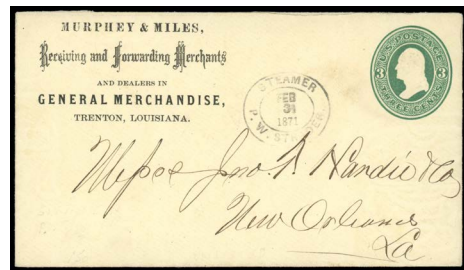 MURPHEY & MILES,
Receiving and Forwarding Merchants
AND DEALERS IN
GENERAL MERCHANDISE,
TRENTON, LOUISIANA.
STEAMER
FEB
31
1871
P. W.
U.S. POSTAGE
3 3
THREE CENTS
Messrs Jno. T. Hardie & Co
New Orleans
La